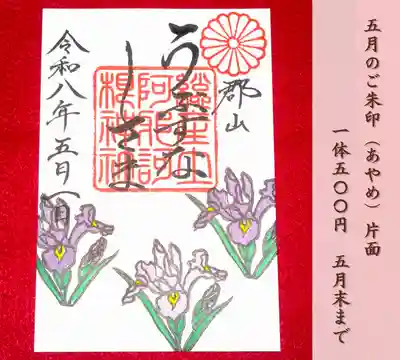 五月のご朱印（あやめ）片面
一体五〇〇円　五月末まで
郡山
うぶすな
總産土
阿邪訶
根神社
令和八年五月一日